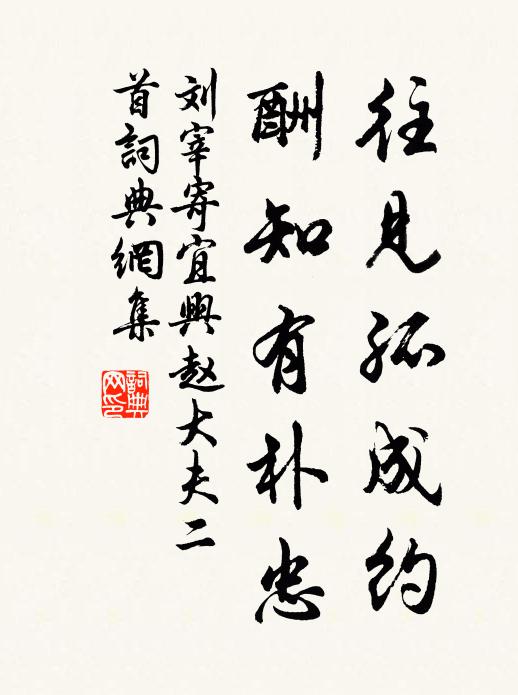 往見孤成約
酬知有朴忠
刘宰寄宜興赵大夫二
首詞典網集
詞典
网印